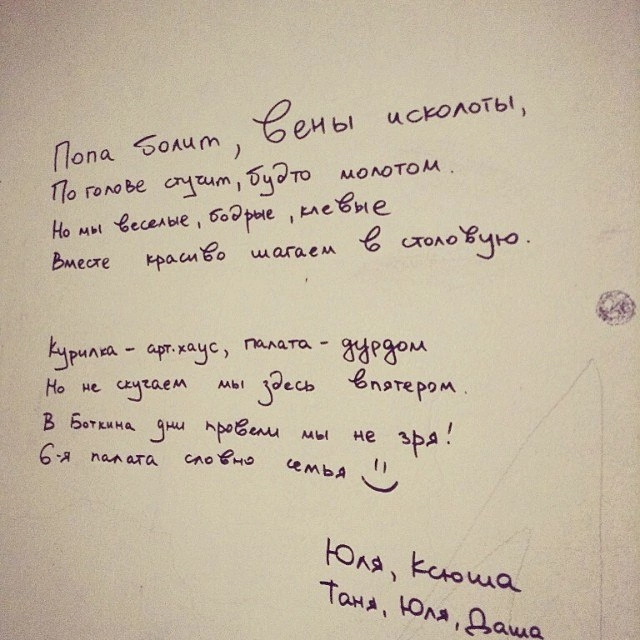 Попа болит, вены исколоты,
По голове стучит, будто молотом.
Но мы веселые, бодрые, клевые
Вместе красиво шагаем в столовую.
Курилка - арт.хаус, палата - дурдом
Но не скучаем мы здесь впятером.
В Боткина дни провели мы не зря!
6-я палата словно семья
Юля, Ксюша
Таня, Юля, Даша